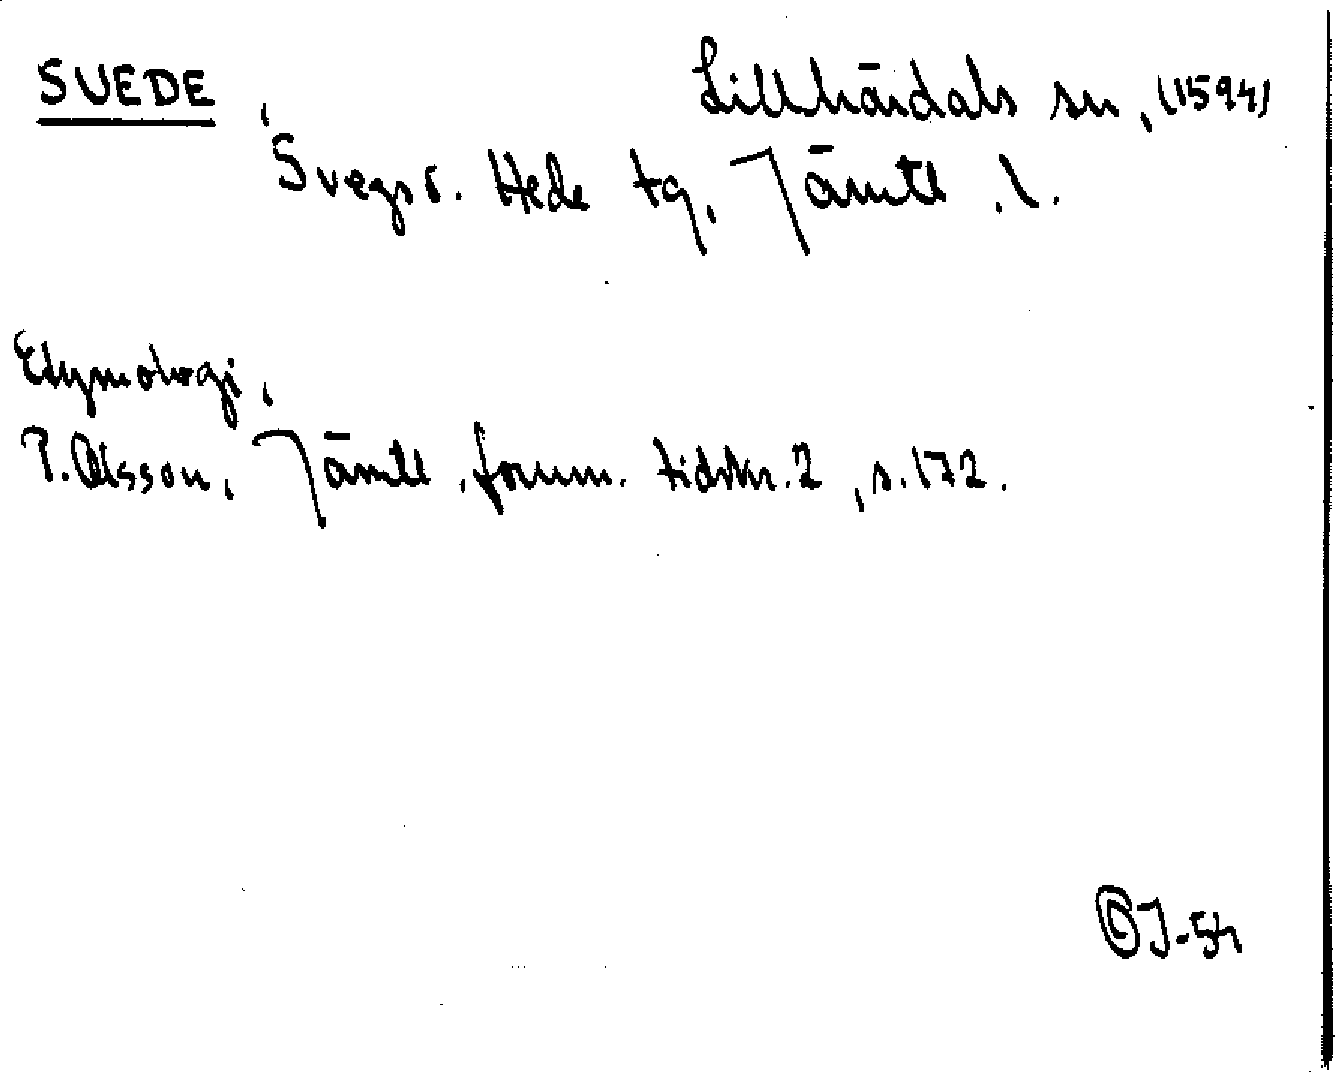 SVEDE, Lillhärdals sn, (1594)
Svegs s. Hede tg, Jämtl. l.
Etymologi,
P. Olsson, Jämtl. fornm. tidskr. 2, s. 172.
J-54